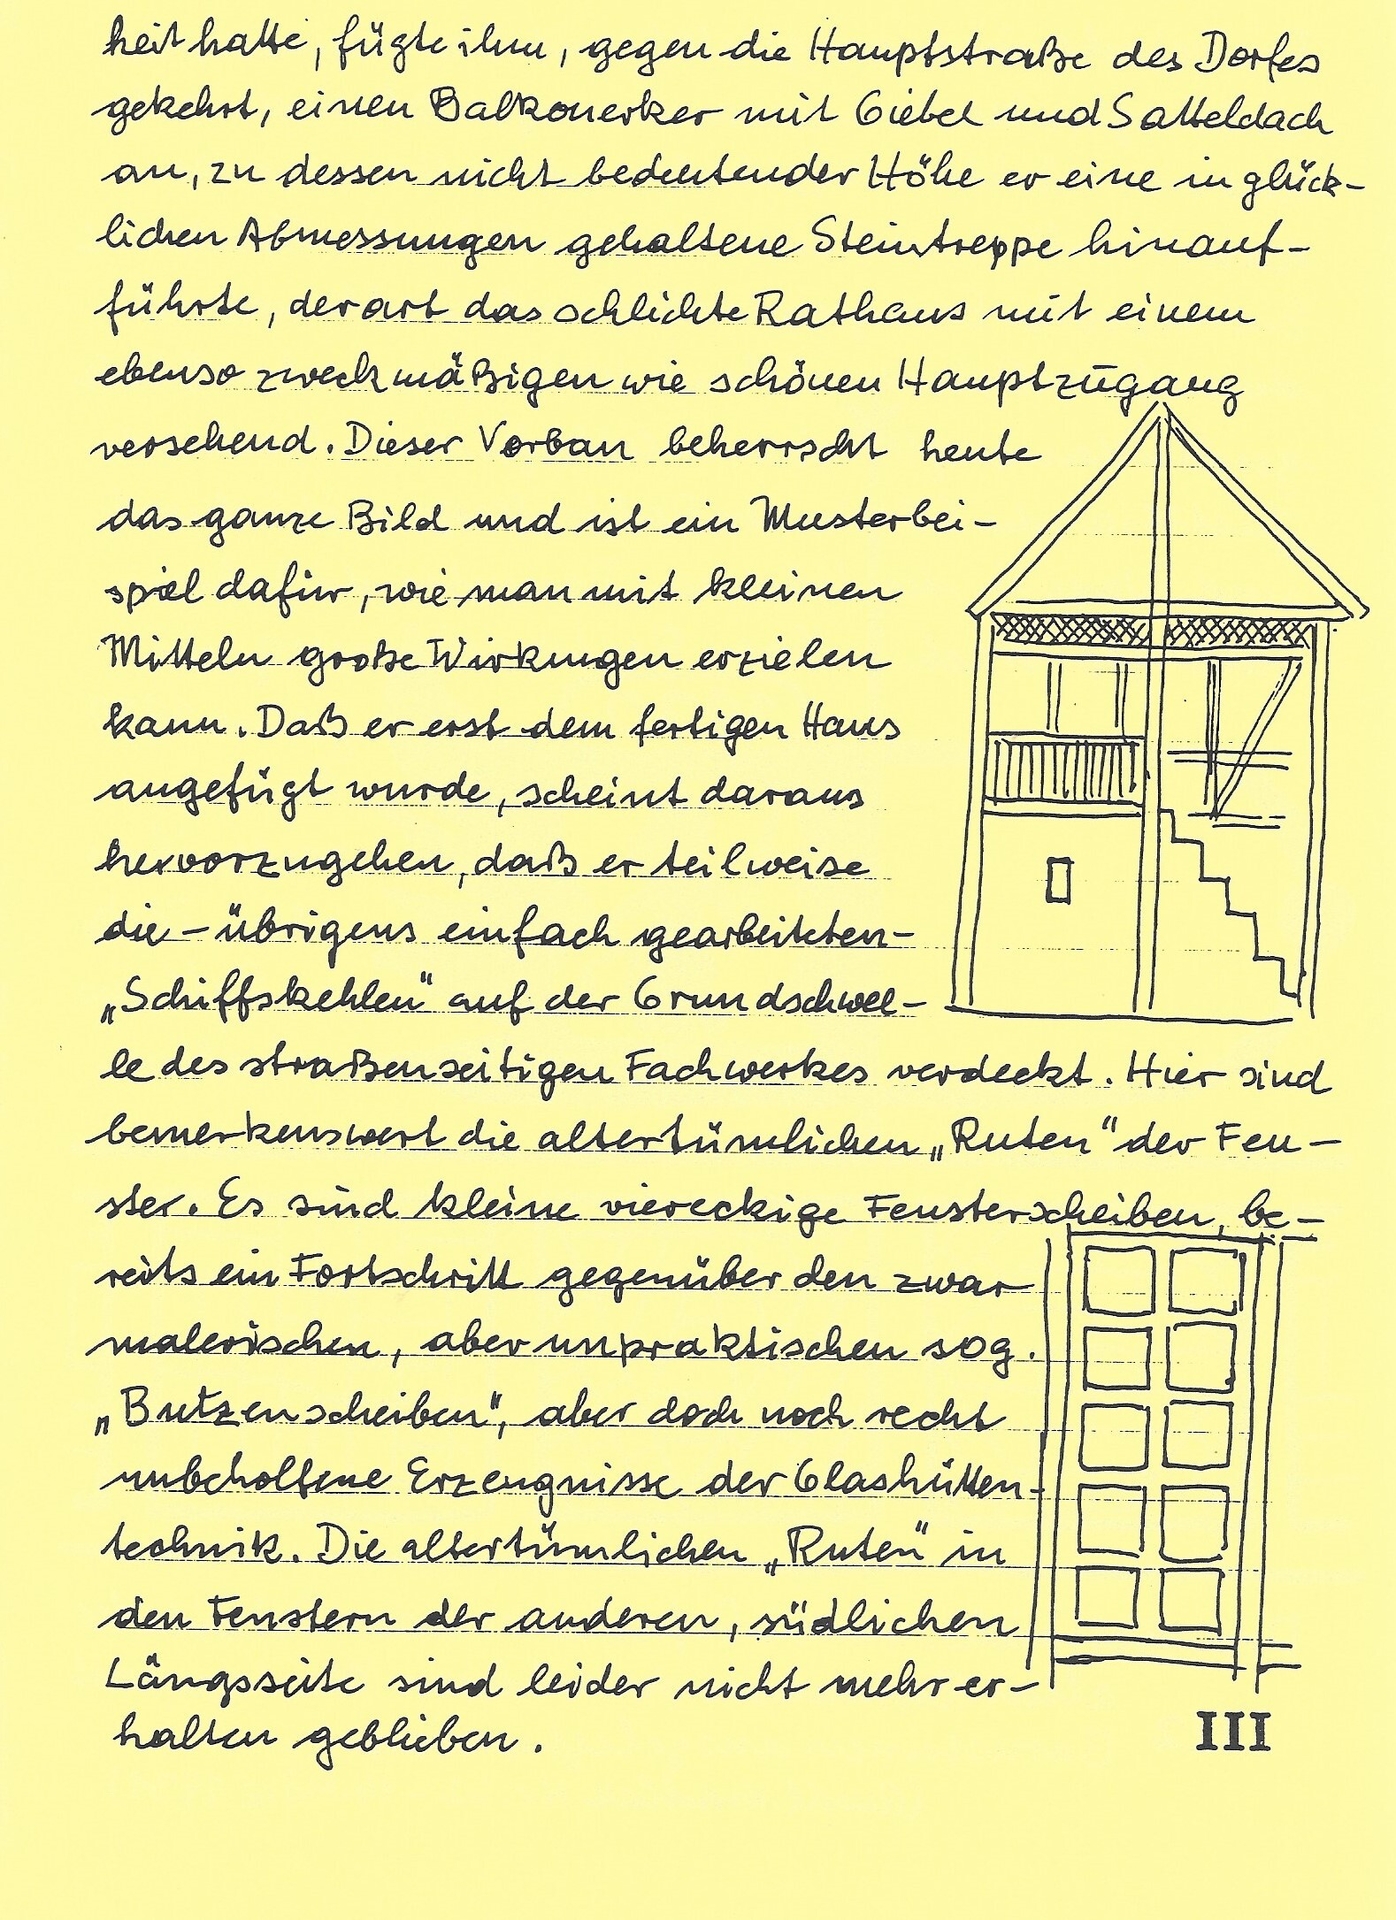 heit hatte, fügte ihm, gegen die Hauptstraße des Dorfes
gekehrt, einen Balkonerker mit Giebel und Satteldach
an, zu dessen nicht bedeutender Höhe er eine in glück-
lichen Abmessungen gehaltene Steintreppe hinauf-
führte, derart das schlichte Rathaus mit einem
ebenso zweckmäßigen wie schönen Hauptzugang
versehend. Dieser Vorbau beherrscht heute
das ganze Bild und ist ein Musterbei-
spiel dafür, wie man mit kleinen
Mitteln große Wirkungen erzielen
kann. Daß er erst dem fertigen Haus
angefügt wurde, scheint daraus
hervorzugehen, daß er teilweise
die – übrigens einfach gearbeiteten –
„Schiffskehlen“ auf der Grundschwel-
le des straßenseitigen Fachwerkes verdeckt. Hier sind
bemerkenswert die altertümlichen „Ruten“ der Fen-
ster. Es sind kleine viereckige Fensterscheiben, be-
reits ein Fortschritt gegenüber den zwar
malerischen, aber unpraktischen sog.
„Butzenscheiben“, aber doch noch recht
unbeholfene Erzeugnisse der Glashütten-
technik. Die altertümlichen „Ruten“ in
den Fenstern der anderen, südlichen
Längsseite sind leider nicht mehr er-
halten geblieben.
III